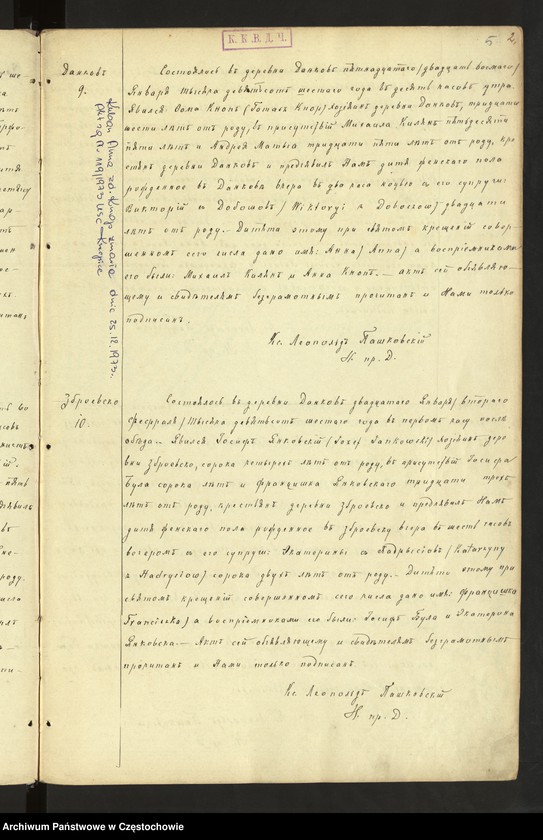 К.К.В.Д.Ч.
5 2.
Данковъ
9.
Состоялось въ деревни Данковъ пятнадцатаго /двадцать восьмаго/
Января тысяча девятьсотъ шестого года въ десять часовъ утра.
Явился Ѳома Кнопъ /Tomasz Knop/ хозяинъ деревни Данковъ, тридцати
шести лѣтъ отъ роду, въ присутствiи Михаила Килянъ пятьдесяти
пяти лѣтъ и Андрея тридцати пяти лѣтъ отъ роду, кре
стьянъ деревни Данковъ и предъявилъ Намъ дитя женскаго пола
рожденное въ Данковѣ вчера въ два часа ночью съ его супруги
Викторiи съ /Wiktoryi z двадцати
лѣтъ отъ роду. Дитяти этому при святомъ крещенiи совер-
шенномъ сего числа дано имя: Анна /Anna/ а воспрiемниками
его были: Михаилъ Килянъ и Анна Кнопъ. — Актъ сей объявляю-
щему и свидѣтелямъ безграмотнымъ прочитанъ и Нами только
подписанъ.
Кс. Леопольдъ Пашковскiй
Н. пр. Д.
Anna zd. Knop zmarła dnia 25.12.1973 r.
119/1973 USC
Зброевско
10.
Состоялось въ деревни Данковъ двадцатаго Января /втораго
Февраля/ тысяча девятьсотъ шестого года въ первомъ часу послѣ
обѣда. Явился Iосифъ Янковскiй /Józef Jankowski/ хозяинъ дере
вни Зброевско, сорока четырехъ лѣтъ отъ роду, въ присутствiи Iосифа
Була сорока лѣтъ и Францишка Янковскаго тридцати трехъ
лѣтъ отъ роду, крестьянъ деревни Зброевско и предъявилъ Намъ
дитя женскаго пола рожденное въ Зброевску вчера въ шесть часовъ
вечеромъ съ его супруги: Екатерины съ /Katarzyny
z сорока двухъ лѣтъ отъ роду. Дитяти этому при
святомъ крещенiи совершенномъ сего числа дано имя: Францишка
Franciszka/ а воспрiемниками его были: Iосифъ Була и Екатерина
Янковска. — Актъ сей объявляющему и свидѣтелямъ безграмотнымъ
прочитанъ и Нами только подписанъ
Кс. Леопольдъ Пашковскiй
Н. пр. Д.
Archiwum Państwowe w Częstochowie